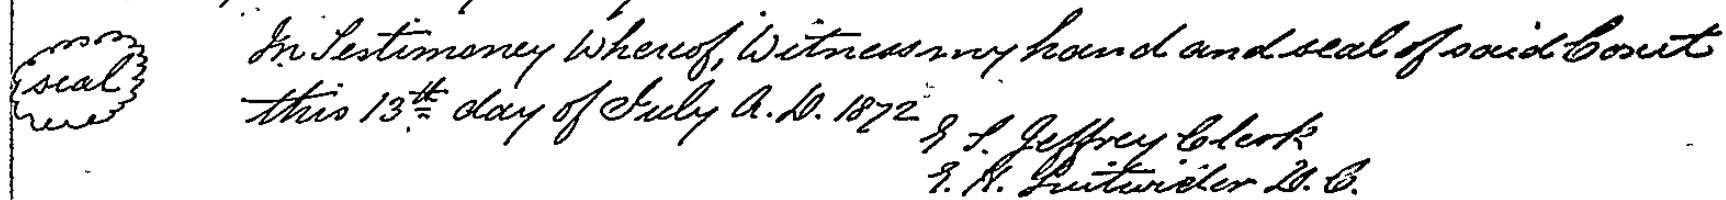 In Testimoney Whereof, Witness my hand and seal of said Court
seal
this 13th day of July A.D. 1872
E S. Jeffrey Clerk
E. H. Luitwieler D.C.